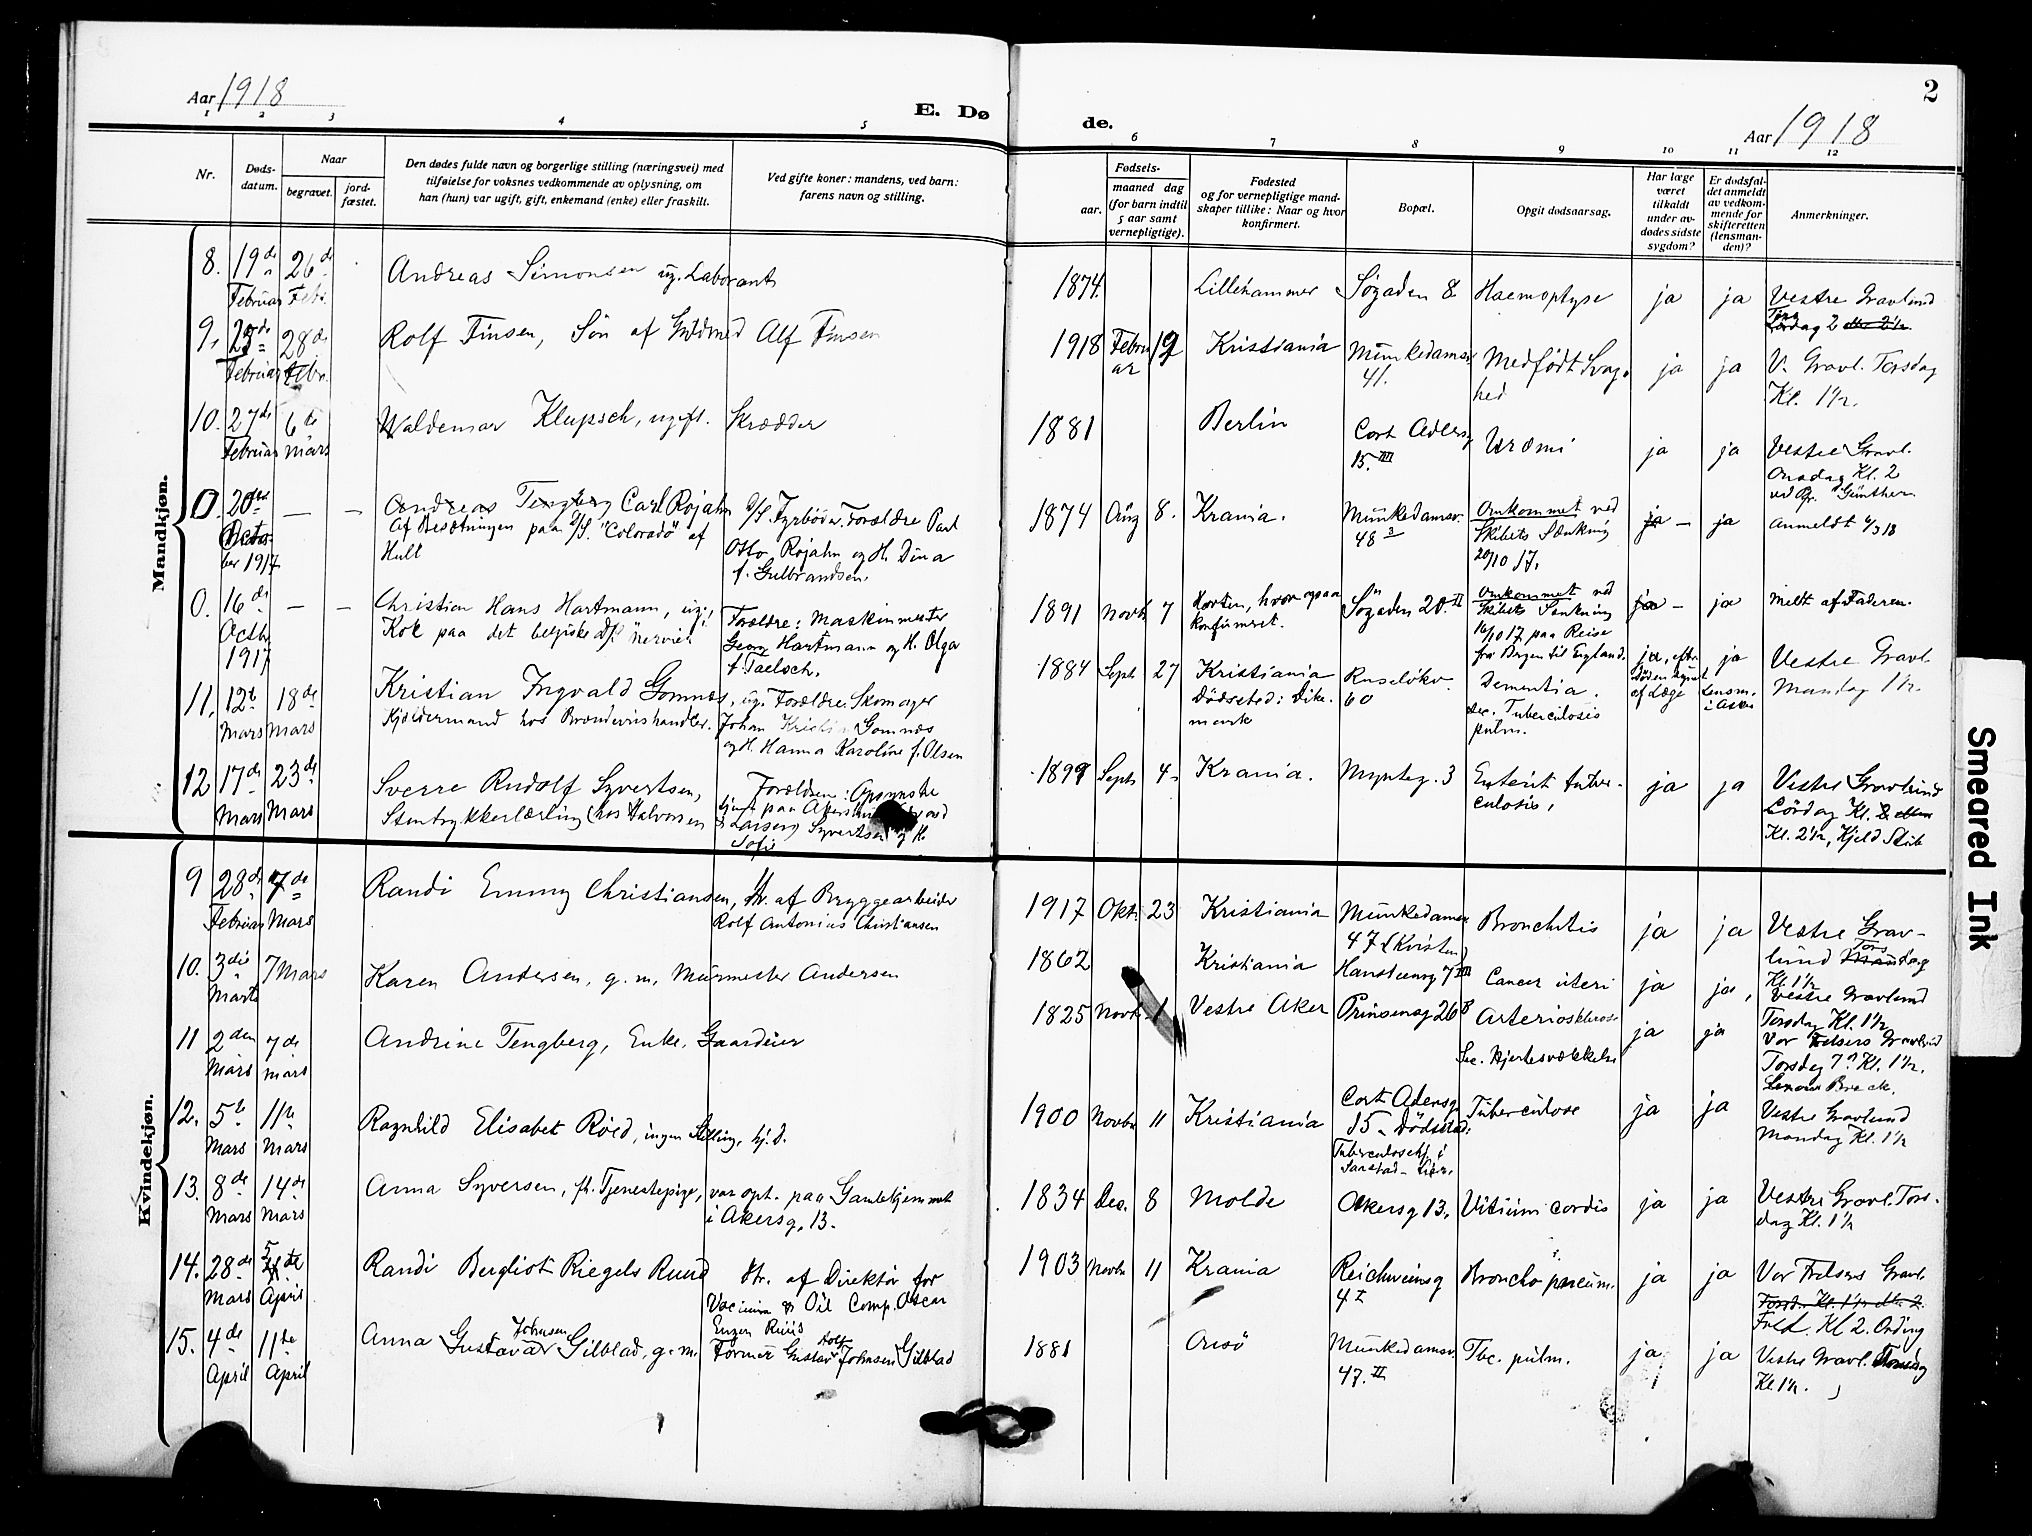 Aar 1918
E. Dø
de.
2
Aar 1918
1 2 3 4 5 6 7 8 9 10 11 12
Nr.
Døds-
datum.
Naar
begravet.
jord-
fæstet.
Den dødes fulde navn og borgerlige stilling (næringsvei) med
tilføielse for voksnes vedkommende av oplysning, om
han (hun) var ugift, gift, enkemand (enke) eller fraskilt.
Ved gifte koner: mandens, ved barn:
farens navn og stilling.
Fødsels-
aar.
maaned dag
(for barn indtil
5 aar samt
vernepligtige).
Fødested
og for vernepligtige mand-
skaper tillike: Naar og hvor
konfirmert.
Bopæl.
Opgit dødsaarsag.
Har læge
været
tilkaldt
under av-
dødes sidste
sygdom?
Er dødsfal-
det anmeldt
av vedkom-
mende for
skifteretten
(lensman-
den)?
Anmerkninger.
Mandkjøn.
8. 19de Februar 26de Febr.
Andreas Simonsen ug. Laborant
1874. Lillehammer Søgaden 8. Haemoptyse ja ja Vestre Gravlund
Lørdag 2
9. 23de Februar 28de Febr.
Rolf Finsen, Søn af Alf Finsen
1918 Februar 19 Kristiania Munkedamsv. 41. Medfødt Svaghed ja ja V. Gravl. Torsdag
Kl. 1½.
10. 27de Februar 6te Mars
Waldemar Klupsch, ugift. Skrædder
1881 Berlin Cort Adlersg 15. III Uræmi ja ja Vestre Gravl.
Onsdag Kl. 2
ved Pr. Günther
0. 20de October 1917 — —
Andreas Tengberg Carl Rojahn
Af Besætningen paa D/S. "Colorado" af
Hull
D/S. Fyrbøder. Forældre Carl
Otto Rojahn og H. Dina
f. Gulbrandsen.
1874 Aug 8. Krania. Munkedamsv. 48 3 Omkommet ved
Skibets Sænkning
20/10 17.
ja — ja anmeldt 4/3 18
0. 16de Octbr. 1917 — —
Christian Hans Hartmann, ug.,
Kok paa det belgiske D/S. "Nervier"
Forældre: Maskinmester
Georg Hartmann og H. Olga
f. Taelsch.
1891 Novb 7 Horten, hvor ogsaa
konfirmeret.
Søgaden 20. II Omkommet ved
Skibets Sænkning
16/10 17 paa Reise
fra Bergen til England.
ja — ja meldt af Faderen.
11. 12te Mars 18de Mars
Kristian Ingvald Gomnæs, ug.
Kjældermand hos Brændevinshandler.
Forældre: Skomager
Johan Kristian Gomnæs
og H. Hanna Karoline f. Olsen
1884 Septb 27 Kristiania
Dødssted: Dike-
mark
Ruseløkv. 60 Dementia.
sec. Tuberculosis
pulm.
ja, efter
Døden synet
af Læge
ja
Lensm.
i Asker
Vestre Gravl.
Mandag 1½.
12 17de Mars 23de Mars
Sverre Rudolf Syvertsen,
Stentrykkerlærling (hos Halvorsen
& Larsen)
Forældre: Opsynsbe
tjent paa Akershus
Syvertsen og H.
Sofie
1899 Septb 4. Krania. Myntg. 3 Enterit tuber-
culosis, ja ja Vestre Gravlund
Lørdag Kl. 2
Kl. 2½, Kjeld Stub
Kvindekjøn.
9 28de Februar 7de Mars
Randi Emmy Christiansen, Dtr. af Bryggearbeider
Rolf Antonius Christiansen
1917 Okt. 23 Kristiania Munkedamsv
47 (Kvisten) Bronchitis ja ja Vestre Grav-
lund Torsdag
Kl. 1½
10. 3die Marts 7 Mars
Karen Andersen, g. m. Murmester Andersen
1862 Kristiania Hansteensg 7 III Cancer uteri ja ja, Vestre Gravlund
Torsdag Kl. 1½
11 2den Mars 7de Mars
Andrine Tengberg, Enke. Gaardeier
1825 Novbr. 1 Vestre Aker Prinsensg 26 B Arteriosklerose
Sec. Hjertesvækkelse ja ja Vor Frelsers Gravlund
Torsdag 7de Kl. 1½.
12. 5te Mars 11te Mars
Ragnhild Elisabet Røed, ingen Stilling, hj.d.
1900 Novbr 11 Kristiania Cort Adlersg
15. Dødssted:
Tuberculosehj. i
Tuberculose ja ja Vestre Gravlund
Mandag Kl. 1½
13. 8de Mars 14de Mars
Anna Syversen, fh. Tjenestepige, var opt. paa Gamlehjemmet
i Akersg. 13.
1834 Dec. 8 Molde Akersg 13. Vitium cordis ja ja Vestre Gravl. Tors-
dag Kl. 1½
14. 28de Mars 5te April
Randi Bergliot Riegels Ruud Dtr. af Direktør for
Vacuum Oil Comp. Oscar
Eugen Ruud
1903 Novbr 11 Krania Reichweinsg
4 I Broncho pneum. ja ja Vor Frelsers Gravl.
Torsd. Kl. 1½ ell. 2
Fred. Kl 2. Ording
15. 4de April 11te April
Anna Gustava Johnsen Gilblad, g. m. Former Gustav Adolf Johnsen Gilblad
1881 Onsø Munkedamsv.
47. II Tbc. pulm. ja ja Vestre Gravl. Torsdag
Kl 1½.
Smeared Ink